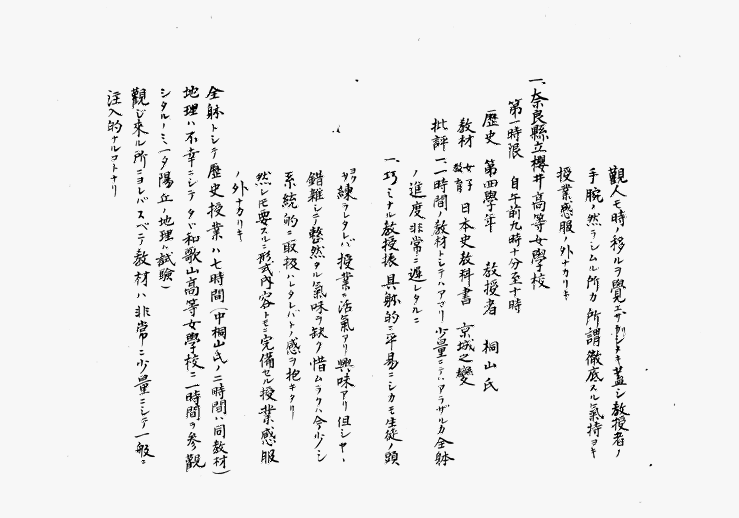 觀人モ時ノ移ルヲ覺エザリシナリ蓋シ教授者ノ
手腕ノ然ラシムル所カ所謂徹底スル氣持ヨキ
授業感服ノ外ナカリキ
一、奈良縣立櫻井高等女學校
第一時限 自午前九時十分至十時
歷史 第四學年 教授者 桐山氏
教材 女子教育日本史教科書 京城之變
批評 一、一時間ノ教材トシテハアマリ少量ニテハアラザルカ全躰
ノ進度非常ニ遲レタルニ
一、巧ミナル教授振具躰的ニ平易ニシカモ生徒ノ頭
ヲヨク練ラレタレバ授業ニ活氣アリ興味アリ但シヤヽ
錯雜シテ整然タル氣味ヲ缺ク惜ムラクハ今少シ
系統的ニ取扱ハレタレバトノ感ヲ抱キタリ
然レトモ要スルニ形式內容トモニ完備セル授業感服
ノ外ナカリキ
全躰トシテ歷史授業ハ七時間(中桐山氏ノ二時間ハ同教材)
地理ハ不幸ニシテタヾ和歌山高等女學校ニ一時間ヲ參觀
シタルノミ(夕陽丘ノ地理ハ試驗)
觀ジ來ル所ニヨレバスベテ教材ハ非常ニ少量ニシテ一般ニ
注入的ナルコトナリ